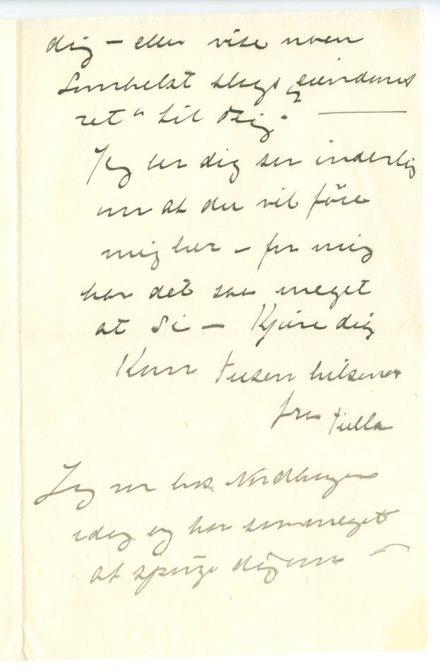 dig – eller vise noen
somhelst slags „eiendoms
ret" til Dig. —
Jeg ber dig saa inderlig
om at du vil føie
mig her – for mig
har det saa meget
at si – Kjære dig
Kun tusen hilsener
fra Tulla
Jeg var hos Nordhagens
idag og har saa meget
at spørge dig om –